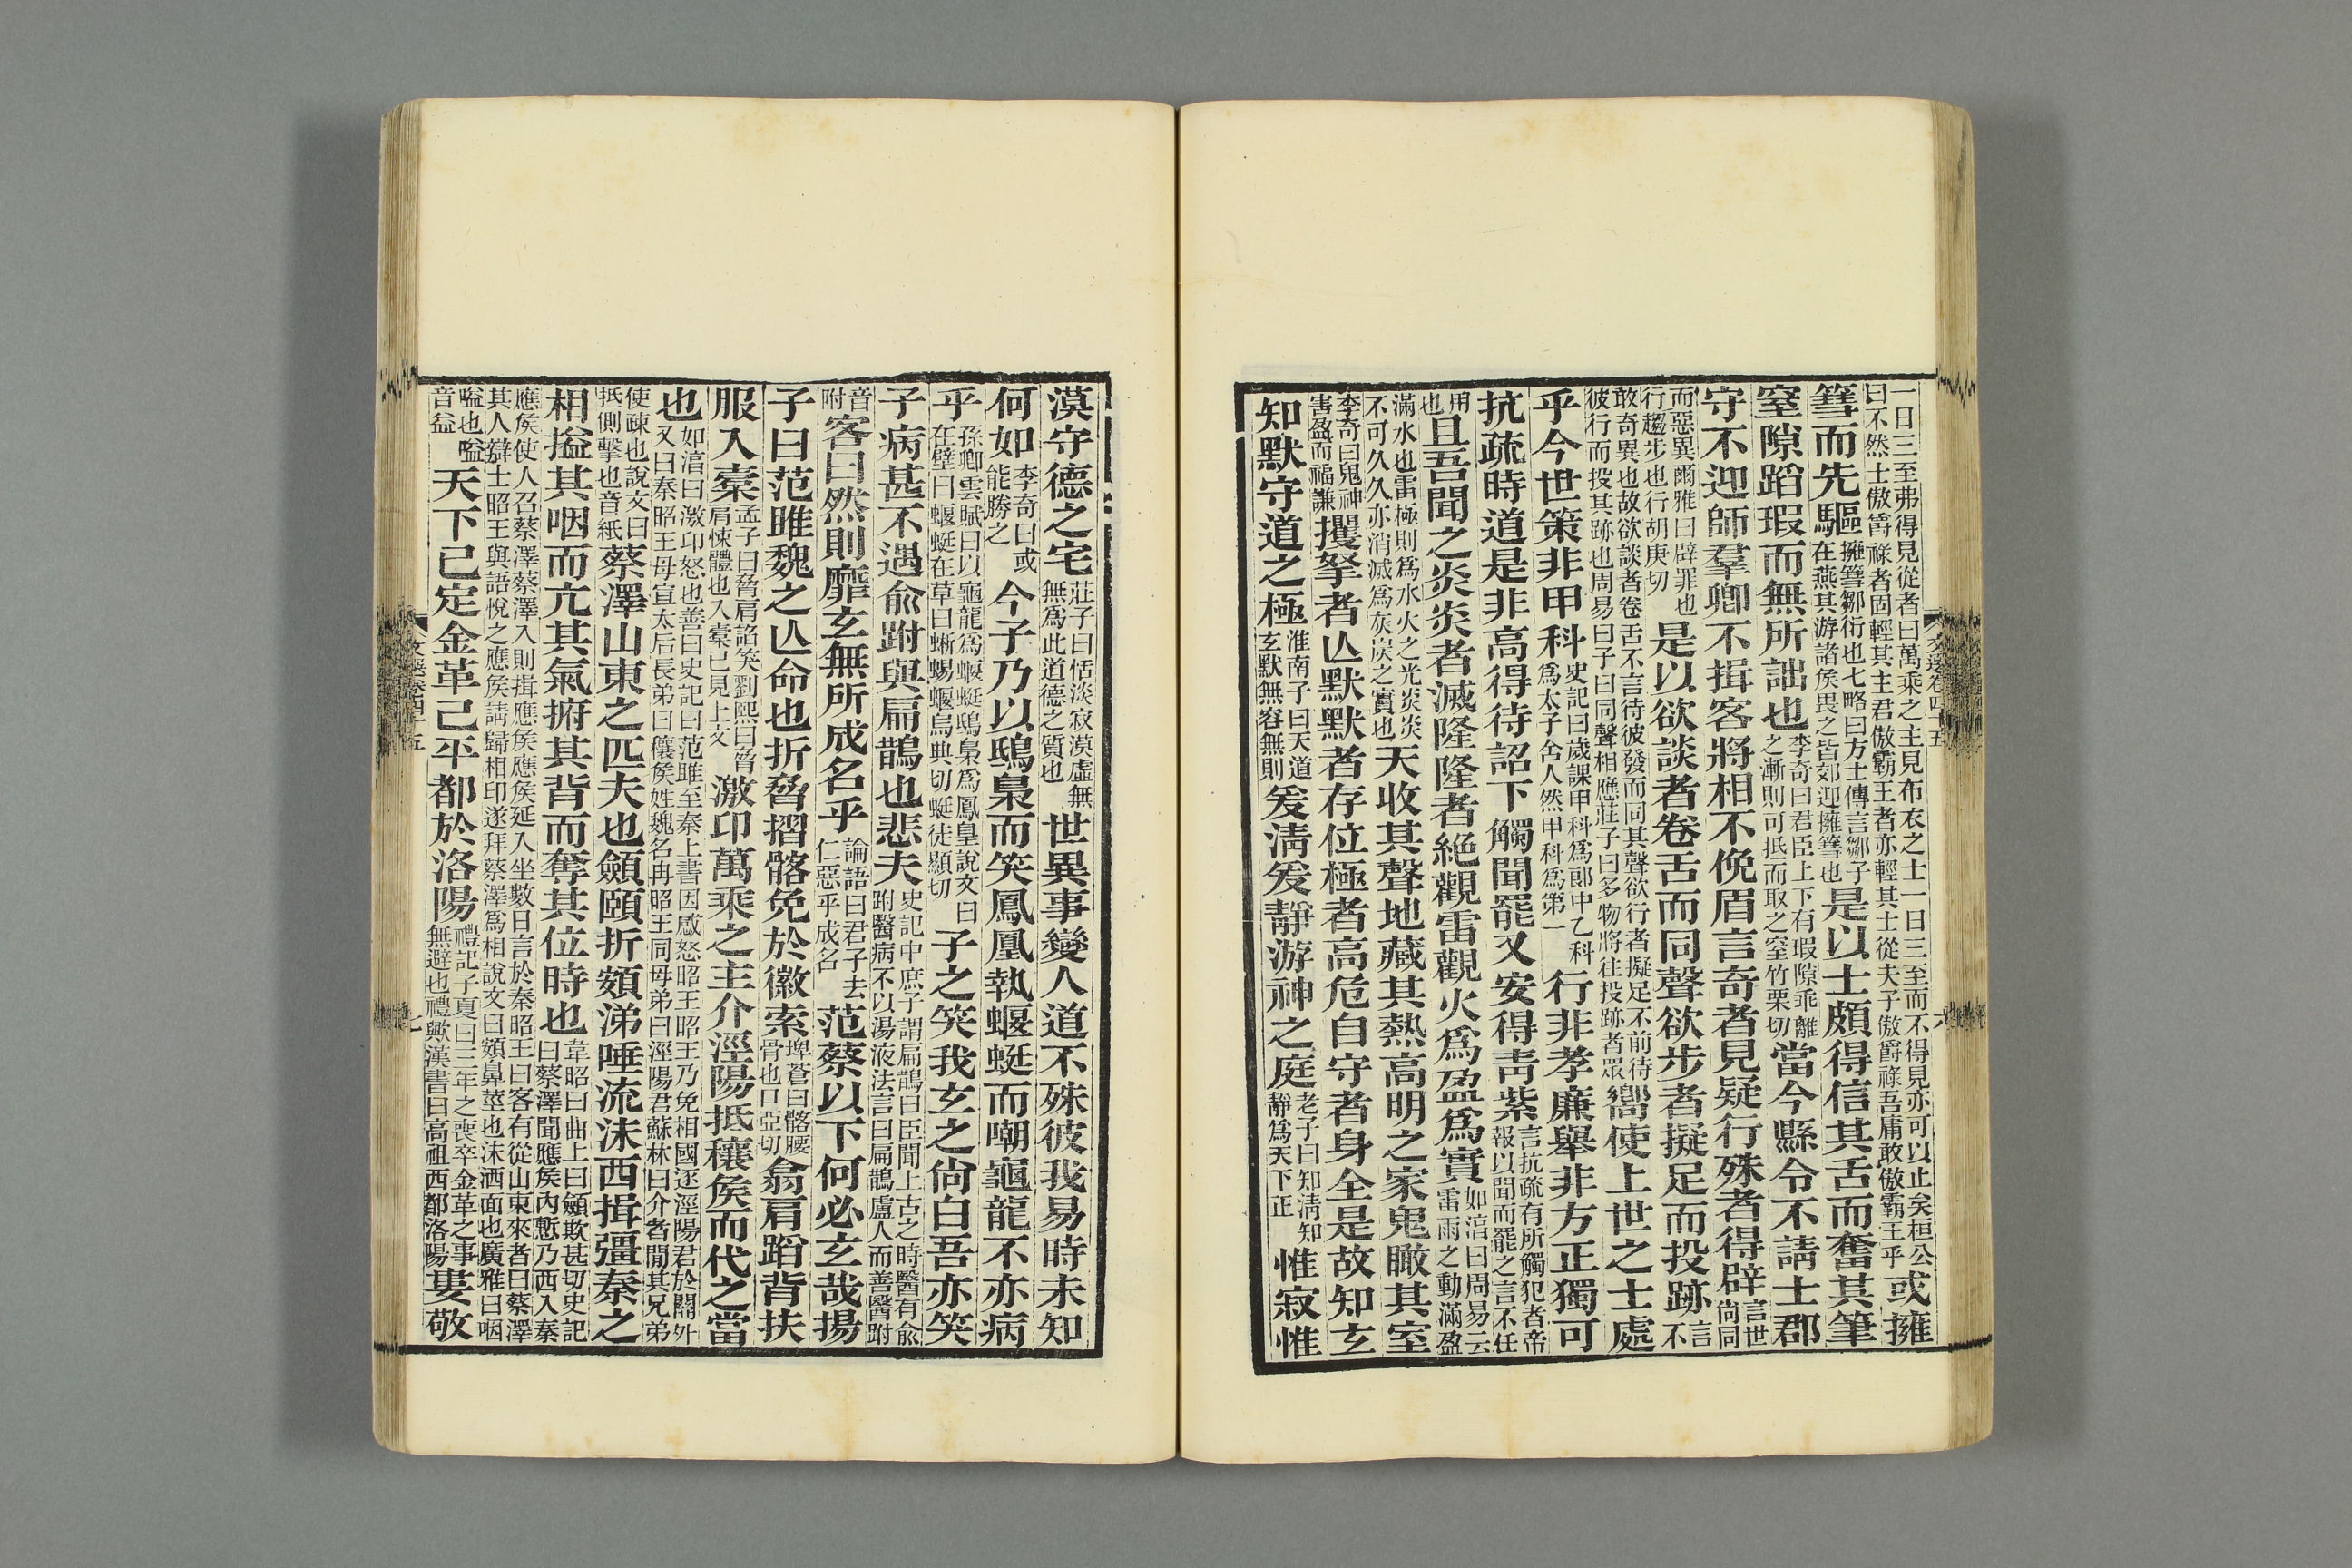 一日三至弗得見從者曰萬乘之主見布衣之士一日三至而不得見亦可以止矣桓公曰不然士傲爵祿者固輕其主君傲霸王者亦輕其士從夫子傲爵祿吾庸敢傲霸王乎或擁
篲而先驅擁篲鄒衍也七略曰方士傳言鄒子在燕其游諸矦畏之皆郊迎擁篲也是以士頗得信其舌而奮其筆
窒隙蹈瑕而無所詘也李奇曰君臣上下有瑕隙乖離之漸則可抵而取之窒竹栗切當今縣令不請士郡
守不迎師羣卿不揖客將相不俛眉言奇者見疑行殊者得辟言世尚同
而惡異爾雅曰辟罪也行趨步也行胡庚切是以欲談者卷舌而同聲欲步者擬足而投跡言不
敢奇異也故欲談者卷舌不言待彼發而同其聲欲行者擬足不前待彼行而投其跡也周易曰子曰同聲相應莊子曰多物將往投跡者眾嚮使上世之士處
乎今世策非甲科史記曰歲課甲科爲郎中乙科爲太子舍人然甲科爲第一行非孝廉舉非方正獨可
抗疏時道是非高得待詔下觸聞罷又安得青紫言抗疏有所觸犯者帝報以聞而罷之言不任
用也且吾聞之炎炎者滅隆隆者絶觀雷觀火爲盈爲實如淳曰周易云雷雨之動滿盈
滿水也雷極則爲水火之光炎炎不可久久亦消滅爲灰炭之實也天收其聲地藏其熱高明之家鬼瞰其室
李奇曰鬼神害盈而福謙攫拏者亾默默者存位極者高危自守者身全是故知玄
知默守道之極淮南子曰天道玄默無容無則爰清爰靜游神之庭老子曰知清知靜爲天下正惟寂惟
文選卷四十五
六
漠守德之宅莊子曰恬淡寂漠虛無無爲此道德之質也世異事變人道不殊彼我易時未知
何如李奇曰或能勝之今子乃以鴟梟而笑鳳凰執蝘蜓而嘲龜龍不亦病
乎孫卿雲賦曰以龜龍爲蝘蜓鴟梟爲鳳皇說文曰在壁曰蝘蜓在草曰蜥蜴蝘烏典切蜓徒顯切子之笑我玄之尙白吾亦笑
子病甚不遇俞跗與扁鵲也悲夫史記中庶子謂扁鵲曰臣聞上古之時醫有俞跗醫病不以湯液法言曰扁鵲盧人而善醫跗
音附客曰然則靡玄無所成名乎論語曰君子去仁惡乎成名范蔡以下何必玄哉揚
子曰范雎魏之亾命也折脅摺髂免於徽索埤蒼曰髂腰骨也口亞切翕肩蹈背扶
服入橐孟子曰脅肩諂笑劉熙曰脅肩悚體也入橐已見上文激卬萬乘之主介涇陽抵穰矦而代之當
也如淳曰激卬怒也善曰史記曰范雎至秦上書因感怒昭王昭王乃免相國逐涇陽君於關外又曰秦昭王母宣太后長弟曰穰矦姓魏名冉昭王同母弟曰涇陽君蘇林曰介者閒其兄弟
使疎也說文曰抵側擊也音紙蔡澤山東之匹夫也顩頤折頞涕唾流沫西揖彊秦之
相搤其咽而亢其氣拊其背而奪其位時也韋昭曰曲上曰顩欺甚切史記曰蔡澤聞應矦內慙乃西入秦
應矦使人召蔡澤蔡澤入則揖應矦應矦延入坐數日言於秦昭王曰客有從山東來者曰蔡澤其人辯士昭王與語悅之應矦請歸相印遂拜蔡澤爲相說文曰頞鼻莖也沬洒面也廣雅曰咽
嗌也嗌音益天下已定金革已平都於洛陽禮記子夏曰三年之喪卒金革之事無避也禮歟漢書曰高祖西都洛陽婁敬
文選卷四十五
七